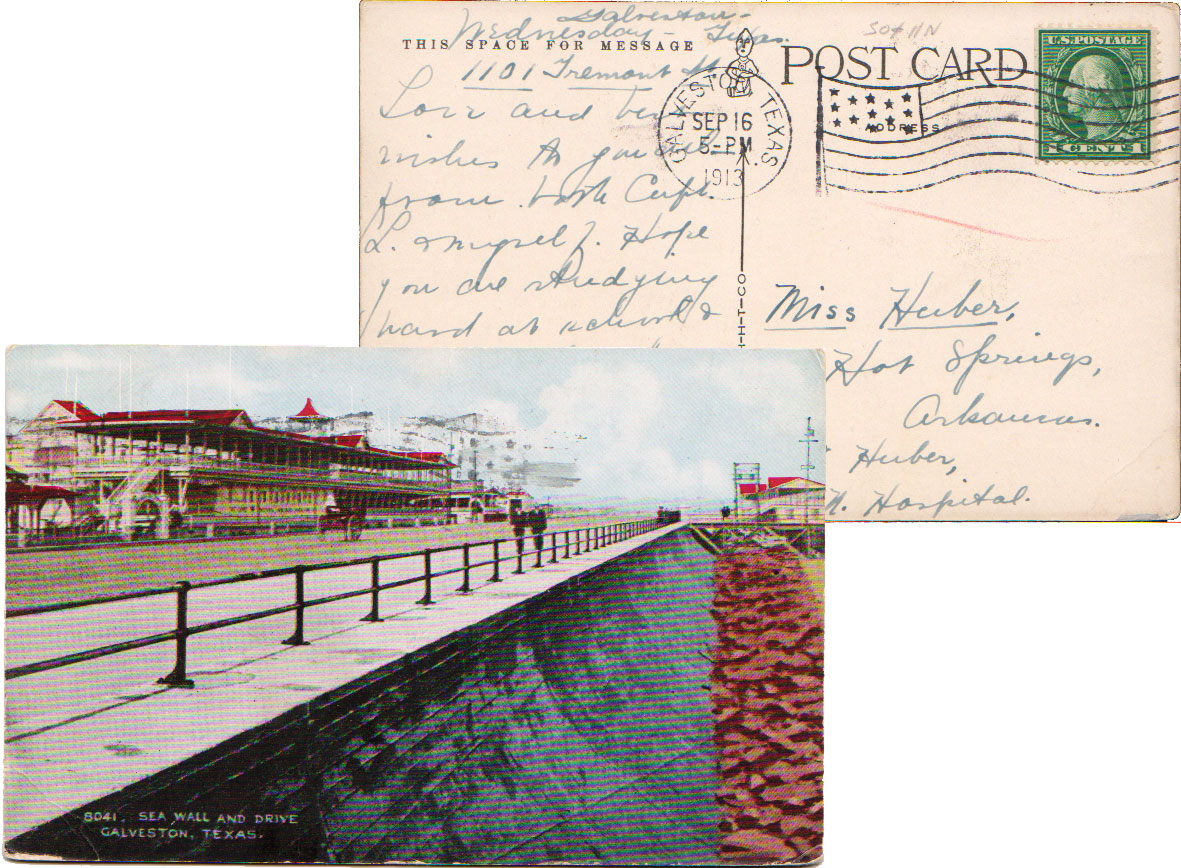 Galveston-
Wednesday - Texas.
THIS SPACE FOR MESSAGE
1101 Tremont St
Love and best
wishes to yourself
from both Capt.
L. & myself. Hope
you are studying
hard at school &
POST CARD
ADDRESS
GALVESTON TEXAS
SEP 16
5-PM
1913
U.S. POSTAGE
CENTS
H-T-CO
Miss Huber,
Hot Springs,
Arkansas.
Huber,
N. Hospital.
8041. SEA WALL AND DRIVE
GALVESTON, TEXAS.